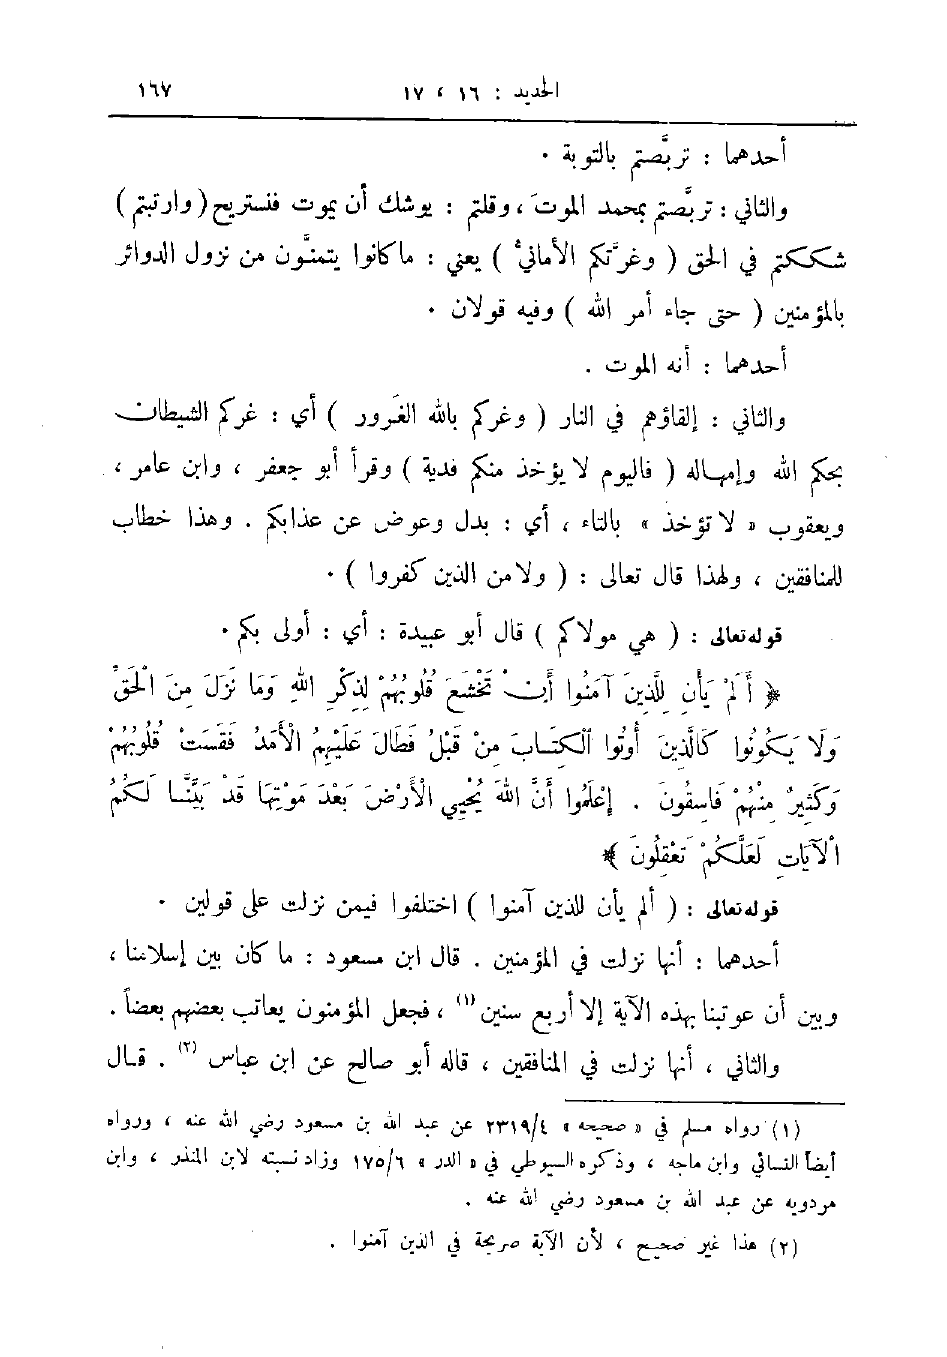 الحديد : ١٦ ، ١٧ ١٦٧
أحدهما : تربَّصتم بالتوبة .
والثاني : تربَّصتم بمحمد الموتَ ، وقلتم : يوشك أن يموت فنستريح ( وارتبتم )
شككتم في الحق ( وغرَّتكم الأمانيُّ ) يعني : ما كانوا يتمنَّون من نزول الدوائر
بالمؤمنين ( حتى جاء أمر الله ) وفيه قولان .
أحدهما : أنه الموت .
والثاني : إلقاؤهم في النار ( وغركم بالله الغَرور ) أي : غركم الشيطان
بحكم الله وإمهاله ( فاليوم لا يؤخذ منكم فدية ) وقرأ أبو جعفر ، وابن عامر ،
ويعقوب « لا تؤخذ » بالتاء ، أي : بدل وعوض عن عذابكم . وهذا خطاب
للمنافقين ، ولهذا قال تعالى : ( ولا من الذين كفروا ) .
قوله تعالى : ( هي مولاكم ) قال أبو عبيدة : أي : أولى بكم .
﴿ أَلَمْ يَأْنِ لِلَّذِينَ آمَنُوا أَنْ تَخْشَعَ قُلُوبُهُمْ لِذِكْرِ اللهِ وَمَا نَزَلَ مِنَ الْحَقِّ
وَلَا يَكُونُوا كَالَّذِينَ أُوتُوا الْكِتَابَ مِنْ قَبْلُ فَطَالَ عَلَيْهِمُ الْأَمَدُ فَقَسَتْ قُلُوبُهُمْ
وَكَثِيرٌ مِنْهُمْ فَاسِقُونَ . إِعْلَمُوا أَنَّ اللهَ يُحْيِي الْأَرْضَ بَعْدَ مَوْتِهَا قَدْ بَيَّنَّا لَكُمُ
الْآيَاتِ لَعَلَّكُمْ تَعْقِلُونَ ﴾
قوله تعالى : ( ألم يأن للذين آمنوا ) اختلفوا فيمن نزلت على قولين .
أحدهما : أنها نزلت في المؤمنين . قال ابن مسعود : ما كان بين إسلامنا ،
وبين أن عوتبنا بهذه الآية إلا أربع سنين (١) ، فجعل المؤمنون يعاتب بعضهم بعضاً .
والثاني ، أنها نزلت في المنافقين ، قاله أبو صالح عن ابن عباس (٢) . قال
(١) رواه مسلم في « صحيحه » ٢٣١٩/٤ عن عبد الله بن مسعود رضي الله عنه ، ورواه
أيضاً النسائي وابن ماجه ، وذكره السيوطي في « الدر » ١٧٥/٦ وزاد نسبته لابن المنذر ، وابن
مردويه عن عبد الله بن مسعود رضي الله عنه .
(٢) هذا غير صحيح ، لأن الآية صريحة في الذين آمنوا .